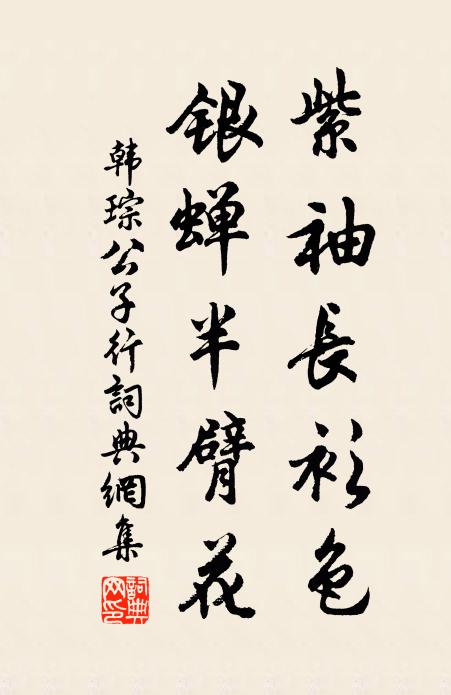 紫袖長衫色
銀蟬半臂花
韩琮公子行詞典網集
詞典网印